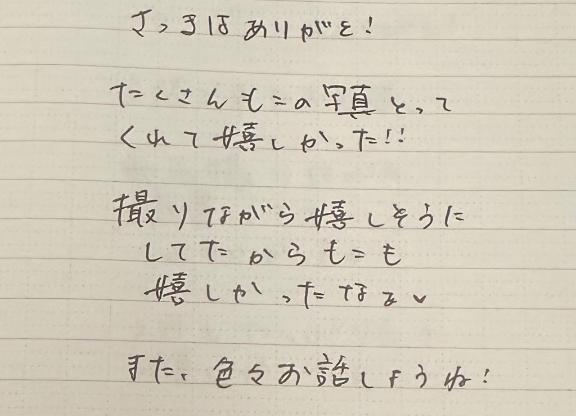 さっきはありがと!
たくさんもこの写真とって
くれて嬉しかった!!
撮りながら嬉しそうに
してたからもこも
嬉しかったなぁ
また、色々お話しようね!